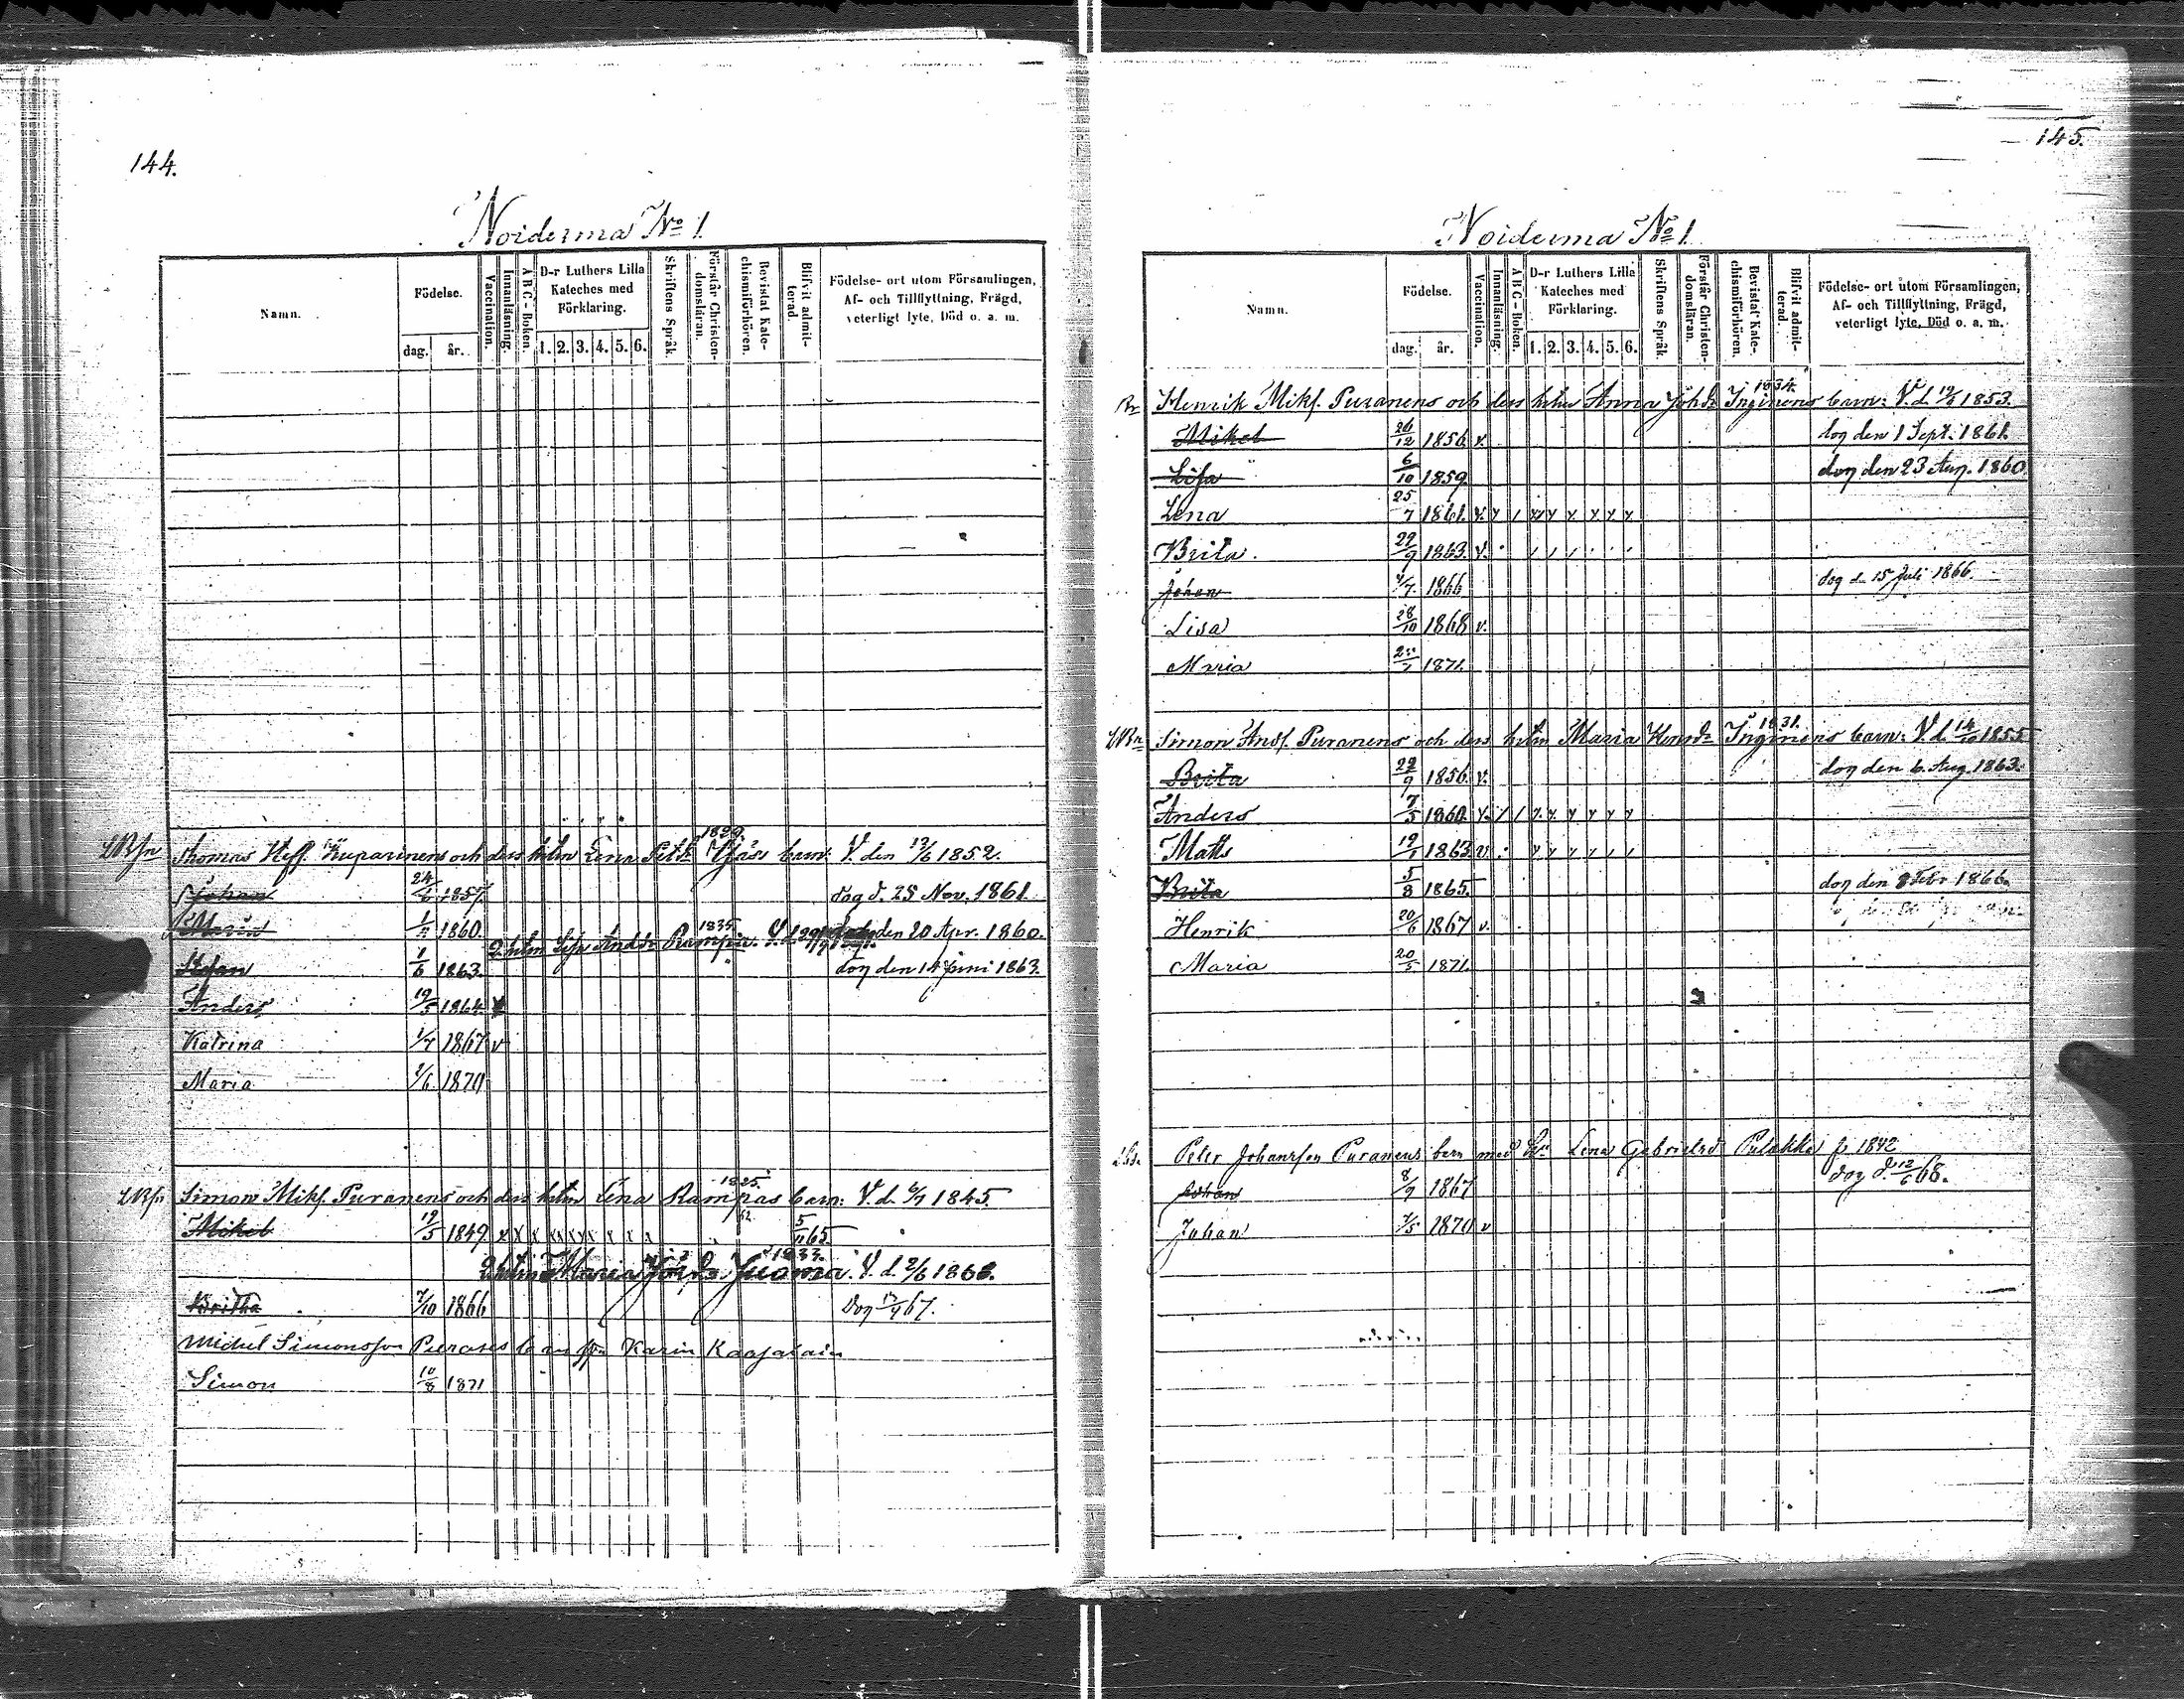 144.
Noiderma No 1.
Namn.
Födelse.
dag. år.
Vaccination.
Innanläsning.
A B C - Boken.
D-r Luthers Lilla Kateches med Förklaring.
1. 2. 3. 4. 5. 6.
Skriftens Språk.
Förstår Christen-domsläran.
Bevistat Kate-chismiförhören.
Blifvit admit-terad.
Födelse- ort utom Församlingen,
Af- och Tillflyttning, Frägd,
veterligt lyte, Död o. a. m.
1829.
Thomas Kuparinens och dess hstru Lena barn: V. den 19/6 1852.
Johan 24/6 1857. dog d. 25 Nov. 1861.
Maria 1/11 1860. den 20 Apr. 1860.
1835
2. hstru Andsdr Rampa.
Stefan 1/6 1863. dog den 14 Juni 1863.
Anders 19/5 1864.
Katrina 1/7 1867 v
Maria 2/6 1870
1825.
Simon Mikf. Puranens och dess hstru Lena Rampas barn: V. d. 6/7 1845.
Mikel 19/5 1849 x x x x x x x x x x 5/11 65.
1833.
2. hstru Maria Juoma. V. d. 2/6 1866.
Britha 7/10 1866 Dog 67.
Michel Simonsson Puranes Karin Kaajalain
Simon 10/8 1871
145.
Noiderma No 1.
Namn.
Födelse.
dag. år.
Vaccination.
Innanläsning.
A B C - Boken.
D-r Luthers Lilla Kateches med Förklaring.
1. 2. 3. 4. 5. 6.
Skriftens Språk.
Förstår Christen-domsläran.
Bevistat Kate-chismiförhören.
Blifvit admit-terad.
Födelse- ort utom Församlingen,
Af- och Tillflyttning, Frägd,
veterligt lyte, Död o. a. m.
1834.
Henrik Mikf. Puranens och dess hstru Anna Johdr Inginens barn: V. d. 1853.
Mikel 26/12 1856. v. dog den 1 Sept. 1861.
Lisa 6/10 1859. dog den 23 Aug. 1860.
Lena 25/7 1861. v. x / x x x x x x
Brita. 29/9 1863. v.
Johan 1866 dog d. 15 Juli 1866.
Lisa 28/10 1868 v.
Maria 1871.
1831.
Simon Andf. Puranens och dess hstru Maria Henrdr Inginens barn: V. d. 14/10 1855.
Brita 22/9 1856. v. dog den 6. Aug. 1863.
Anders 7/5 1860. v. x / x x x x x x
Matts 19/1 1863. v.
Brita 5/8 1865. dog den 8 Febr 1866.
Henrik 20/6 1867 v.
Maria 20/5 1871.
Peter Johansson Puranens barn med Lena Gabrielsd Pulakka f. 1842
Johan 8/9 1867 dog d. 12/6 68.
Johan 7/5 1870 v